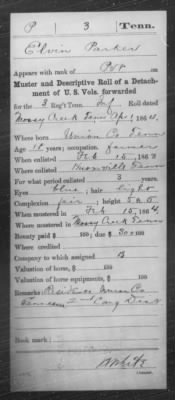 P 3 Tenn.
Elvin Parker
Appears with rank of Pvt on
Muster and Descriptive Roll of a Detach-
ment of U. S. Vols. forwarded
for the 3 Reg't Tenn. Inf Roll dated
Mossy Creek Tenn Apl 1, 1864.
Where born Union Co Tenn
Age 18 y'rs; occupation farmer
When enlisted Feb 15, 186
Where enlisted Knoxville Tenn
For what period enlisted 3 years.
Eyes blue; hair light
Complexion fair; height 5 ft. in.
When mustered in Feb 15, 1864.
Where mustered in Mossy Creek Tenn
Bounty paid $ 100; due $ 300 100
Company to which assigned B
Valuation of horse, $ 100
Valuation of horse equipments, $ 100
Remarks: Residence Union Co
Tennessee 2nd Cong Dist
Book mark: